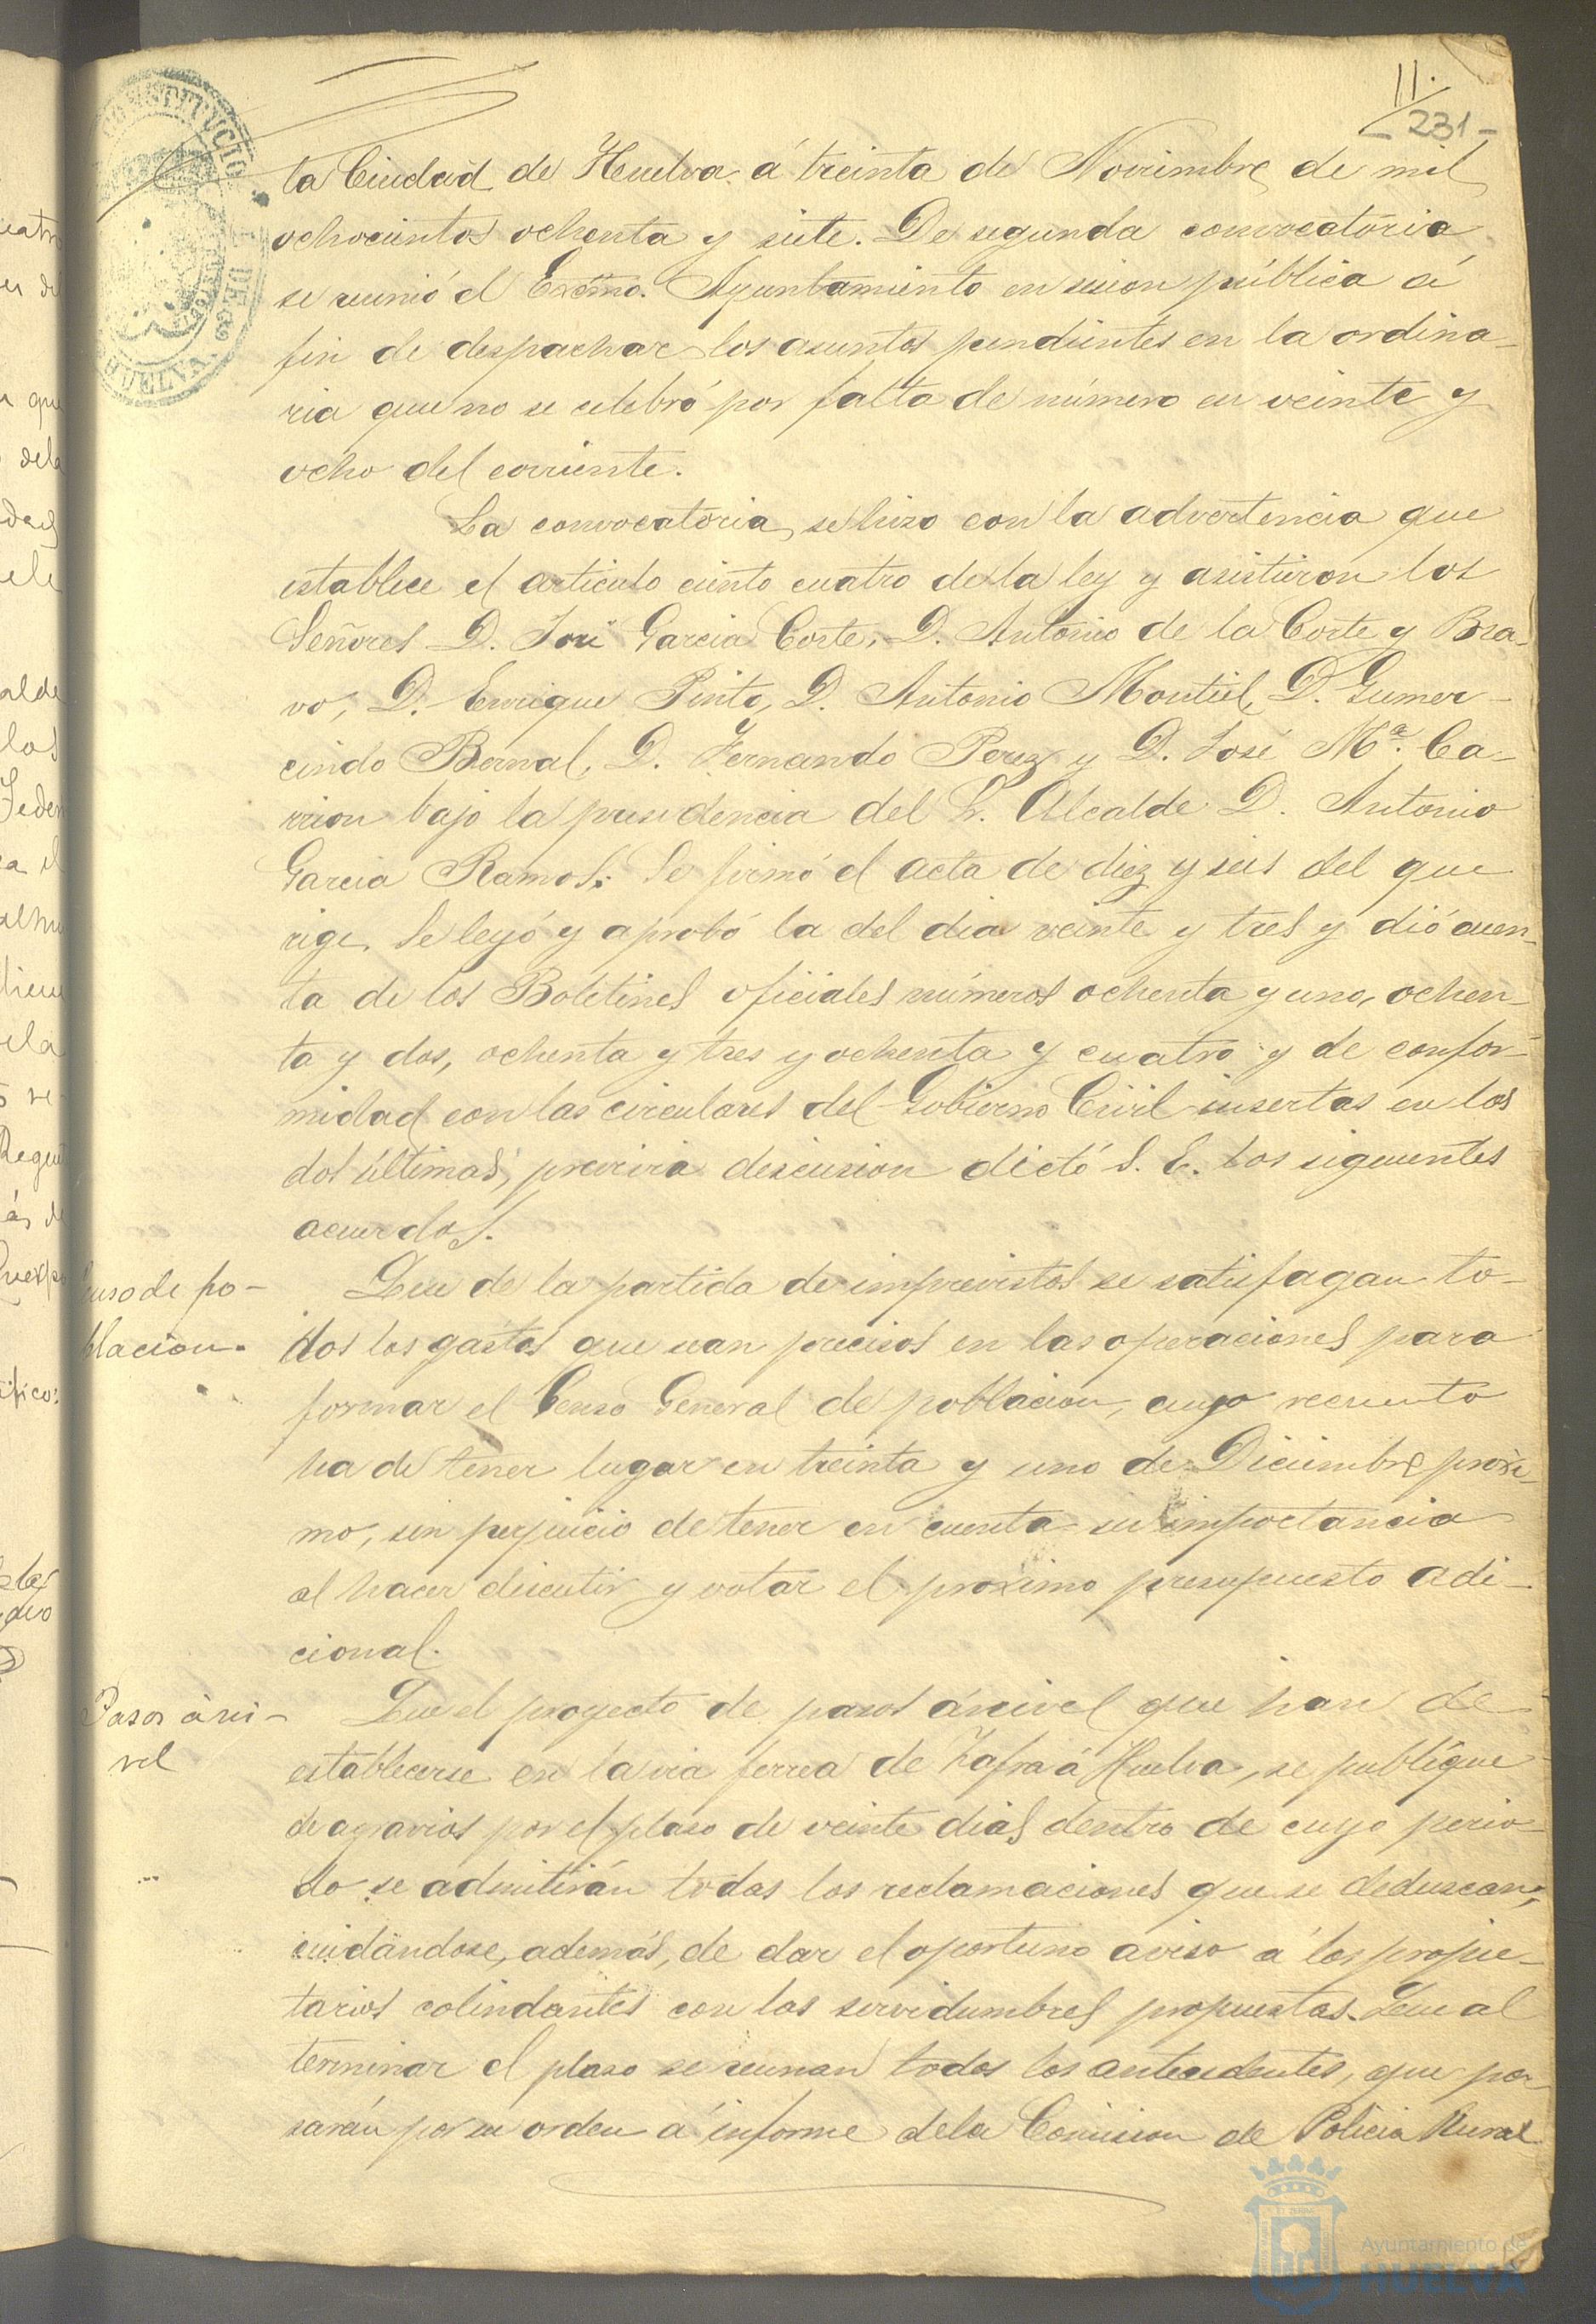 11.
231
CONSTITUCIO
DE
HUELVA.
ta Ciudad de Huelva á treinta de Noviembre de mil
ochocientos ochenta y siete. De segunda convocatoria
se reunió el Excmo. Ayuntamiento en sesion pública á
fin de despachar los asuntos pendientes en la ordina-
ria que no se celebró por falta de número en veinte y
ocho del corriente.
La convocatoria se hizo con la advertencia que
establece el articulo ciento cuatro de la ley y asistieron los
Señores D. José Garcia Corte, D. Antonio de la Corte y Bra-
vo, D. Enrique Pinto, D. Antonio Montiel, D. Gumer-
cindo Bernal, D. Fernando Perez y D. José Mª. Ca-
rrion bajo la presidencia del Sr. Alcalde D. Antonio
Garcia Ramos. Se firmó el acta de diez y seis del que
rige. Se leyó y aprobó la del dia veinte y tres y dió cuen-
ta de los Boletines oficiales números ochenta y uno, ochen-
ta y dos, ochenta y tres y ochenta y cuatro y de confor-
midad con las circulares del Gobierno Civil insertas en los
dos últimos, previa descusion dictó S. E. los siguientes
acuerdos.
Que de la partida de imprevistos se satisfagan to-
dos los gastos que sean precisos en las operaciones para
formar el Censo General de poblacion, cuyo recuento
ha de tener lugar en treinta y uno de Diciembre próxi-
mo, sin perjuicio de tener en cuenta su importancia
al hacer discutir y votar el proximo presupuesto adi-
cional.
nso de po-
blacion.
Que el proyecto de pasos á nivel que han de
establecerse en la via ferrea de Zafra á Huelva, se publique
de agravios por el plazo de veinte dias dentro de cuyo perio-
do se admitirán todas las reclamaciones que se deduzcan,
cuidándose, además, de dar el oportuno aviso á los propie-
tarios colindantes con las servidumbres propuestas. Que al
terminar el plazo se reunan todos los antecedentes, que pa-
sarán por su orden á informe de la Comision de Policia Rural
Pasos á ni-
vel
Ayuntamiento de
HUELVA